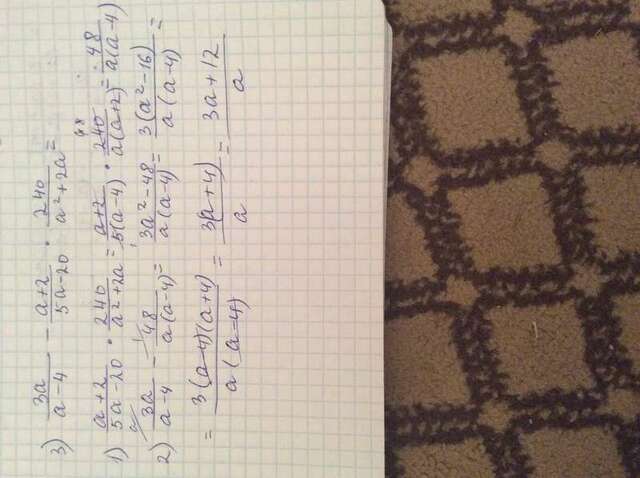 3) 3a/(a-4) - (a+2)/(5a-20) · 240/(a²+2a) =
1) (a+2)/(5a-20) · 240/(a²+2a) = (a+2)/(5(a-4)) · 240/(a(a+2)) = 48/(a(a-4))
2) 3a/(a-4) - 48/(a(a-4)) = (3a²-48)/(a(a-4)) = 3(a²-16)/(a(a-4)) =
= 3(a-4)(a+4)/(a(a-4)) = 3(a+4)/a = (3a+12)/a